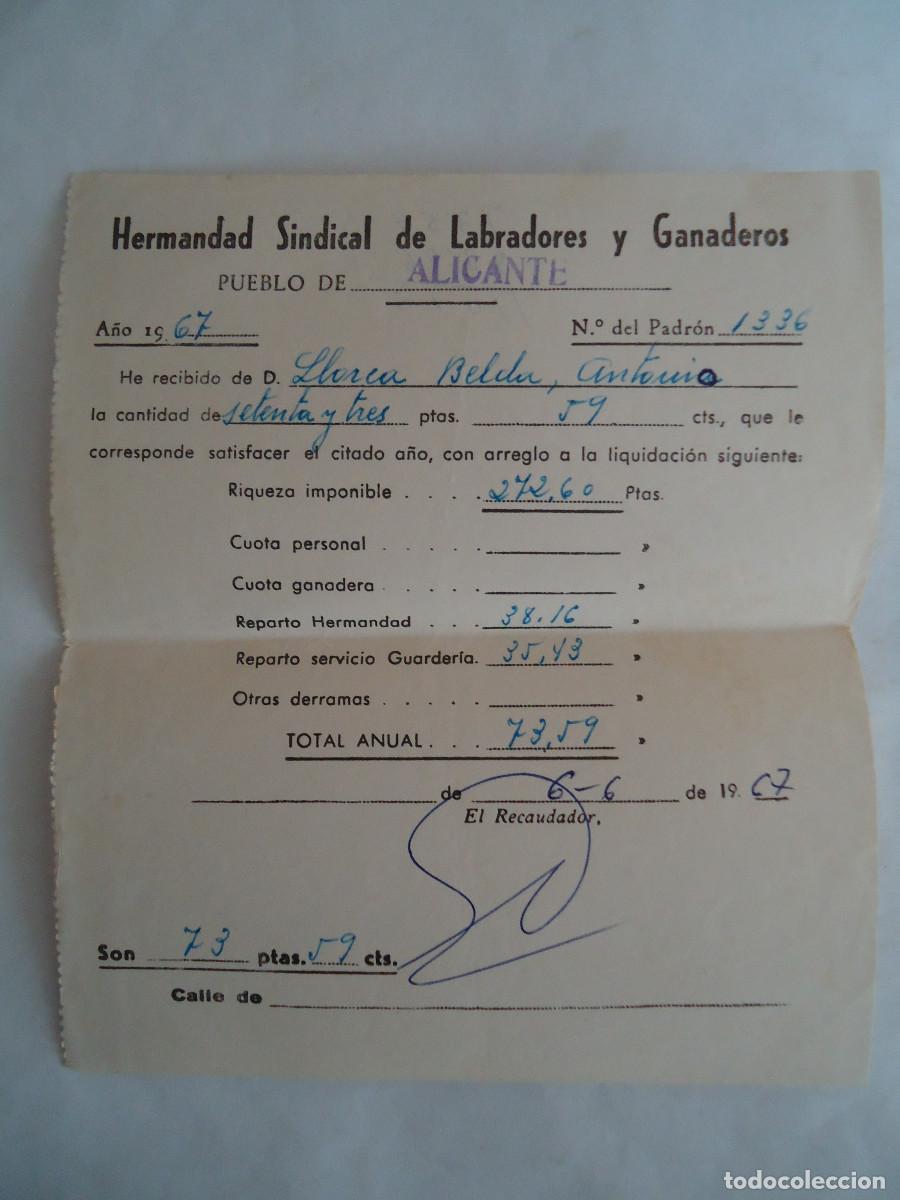 Hermandad Sindical de Labradores y Ganaderos
PUEBLO DE ALICANTE
Año 19 67 N.º del Padrón 1336
He recibido de D. Llorca Belda, Antonio
la cantidad de setenta y tres ptas. 59 cts., que le
corresponde satisfacer el citado año, con arreglo a la liquidación siguiente:
Riqueza imponible . . . . 272,60 Ptas.
Cuota personal . . . . . »
Cuota ganadera . . . . . »
Reparto Hermandad . . . 38.16 »
Reparto servicio Guardería. 35,43 »
Otras derramas . . . . . »
TOTAL ANUAL . . . 73,59 »
de 6-6 de 19. 67
El Recaudador,
Son 73 ptas. 59 cts.
Calle de
todocoleccion